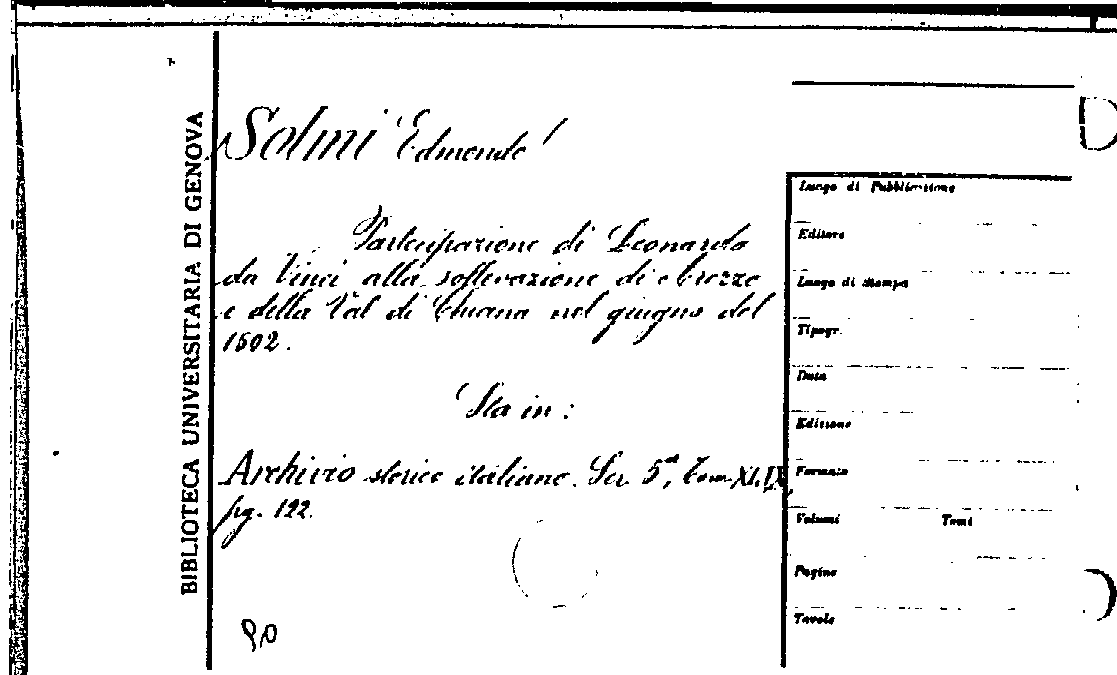 BIBLIOTECA UNIVERSITARIA DI GENOVA
Solmi Edmondo
Partecipazione di Leonardo
da Vinci alla sollevazione di Arezzo
e della Val di Chiana nel giugno del
1502.
Sta in:
Archivio storico italiano. Ser. 5ª, Tom. XLIX,
pg. 122.
Luogo di Pubblicazione
Editore
Luogo di Stampa
Tipogr.
Data
Edizione
Formato
Volumi Tomi
Pagine
Tavole